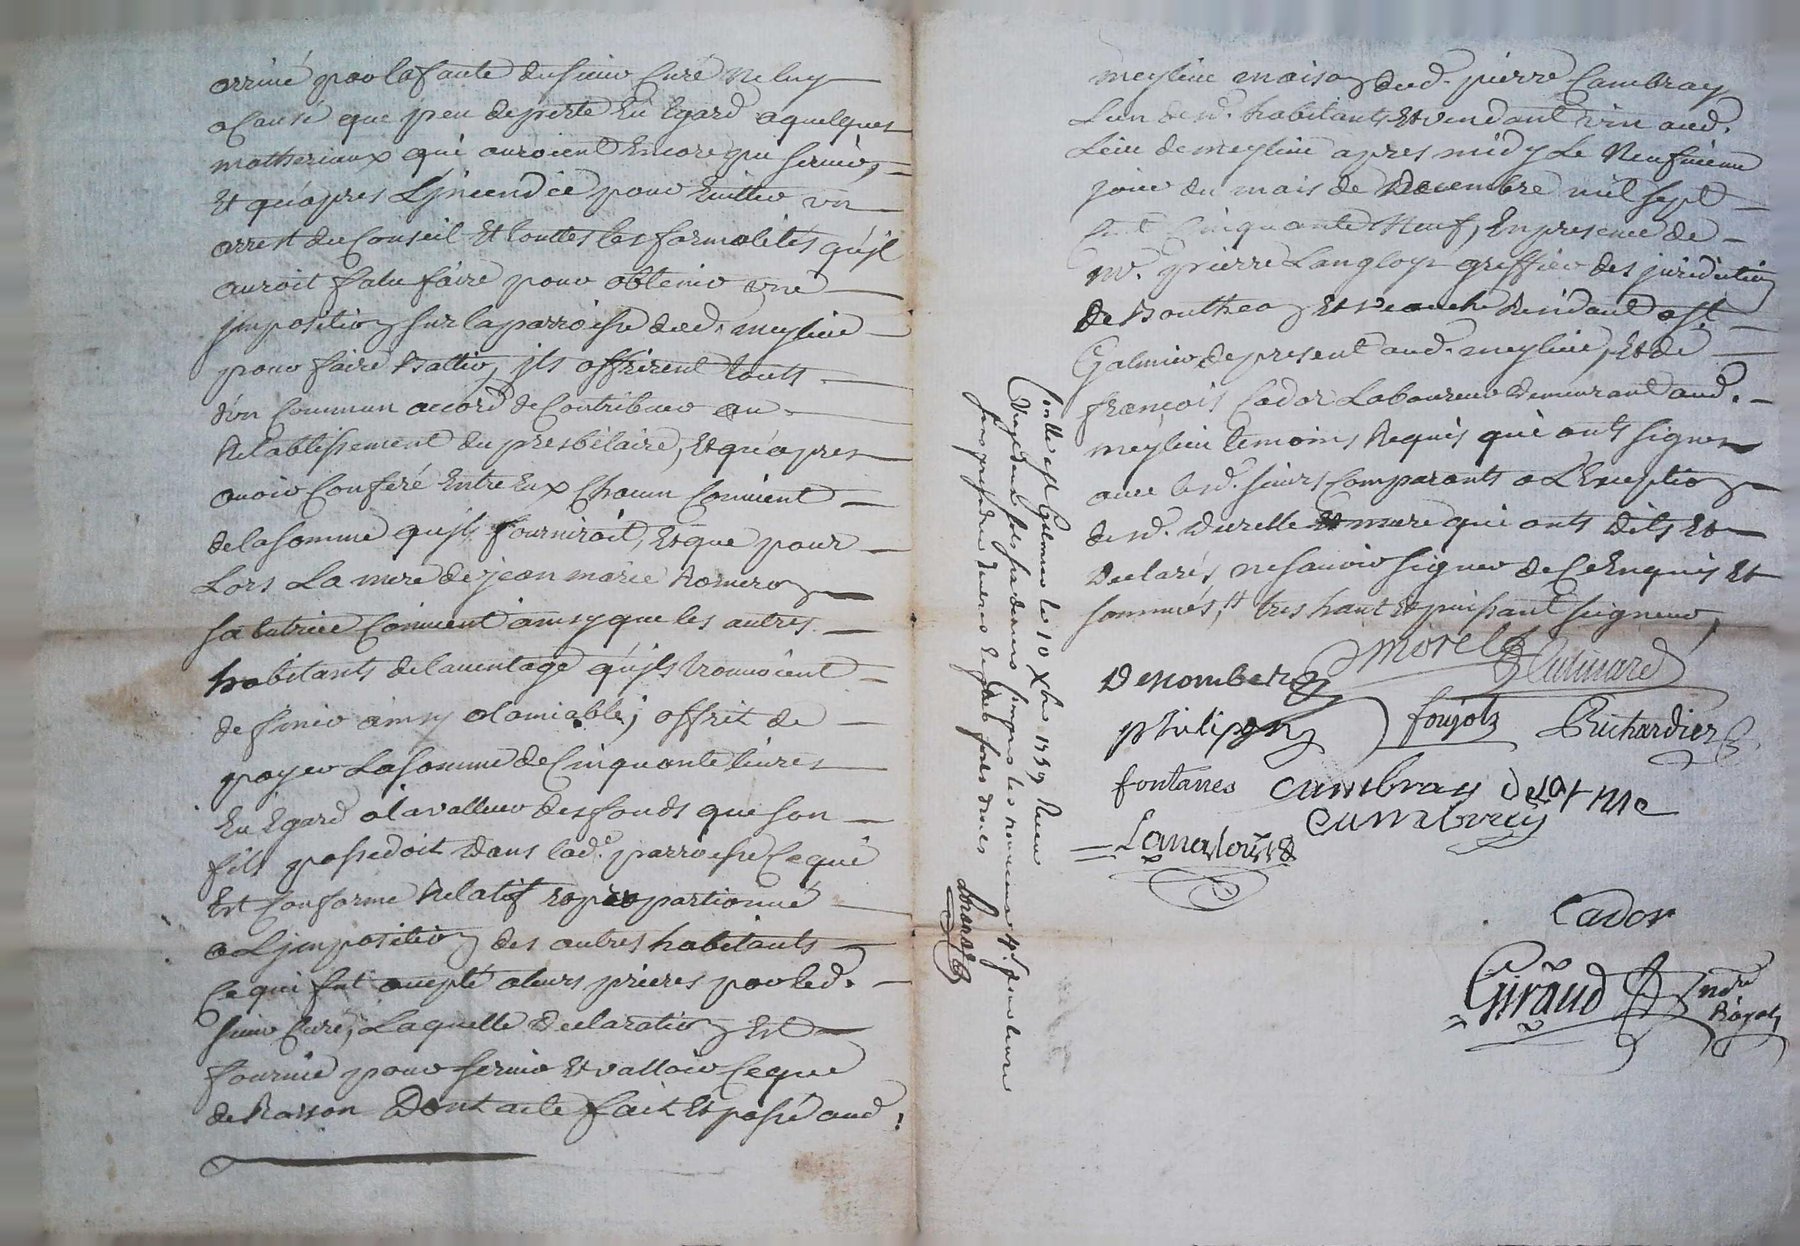 arrivé par la faute du sieur Curé ne luy
a Causé que peu de perte Eu Egard a quelques
matheriaux qui auroient Encore pu servir,
Et qu'apres L'jncendié pour Eviter un
arrest du Conseil Et touttes les formalités qu'jl
auroit falu faire pour obtenir une
jmposition sur la parroisse dud. meylieu
pour faire Battir, jls offrirent touts
d'un Commun accord de Contribuer au
Retablissement du presbitaire, Et qu'apres
avoir Conferé Entre Eux Chacun Convient
de la somme qu'jl fourniroit, Et que pour
Lors La mere de jean marie
sa tutrice Convient ainsy que les autres
habitants de l'aventage qu'jls trouvoient
de finir ainsy a l'amiable; offrit de
payer La somme de Cinquante livres
Eu Egard a la valleur des fonds que son
fils possedoit Dans lad. parroisse Ce qui
Est Conforme Relatif proportionné
a L'jmposition des autres habitants
Ce qui fut accepté a leurs prieres par led.
sieur Curé, Laquelle declaration Est
fournie pour servir Et valloir Ce que
de Raison Dont acte fait Et passé aud.
meylieu maison dud. pierre Cambray
L'un desd. habitants Et vendant vin aud.
Lieu de meylieu apres midy Le Neufvieme
jour du mois de Decembre mil sept
Cent Cinquante Neuf, En presence de
Me. pierre Langlois greffier des juridictions
de Boutheon Et veauche Residant a St.
Galmier de present aud. meylieu, Et de
françois Cador Laboureur Demeurant aud.
meylieu temoins Requis qui ont signés
avec lesd. sieurs Comparants a L'Exception
desd. Durelle Et mure qui ont Dits Et
Declarés, ne savoir signer de Ce Enquis Et
sommés, // tres haut Et puissant seigneur,
Morel
Denombret
philipon foujols Richardier
fontanes cambray Delorme
cambray
Langlois
Cador
Giraud Ndre
Royal
Conllé a St Galmier le 10 Xbre 1759 Receu